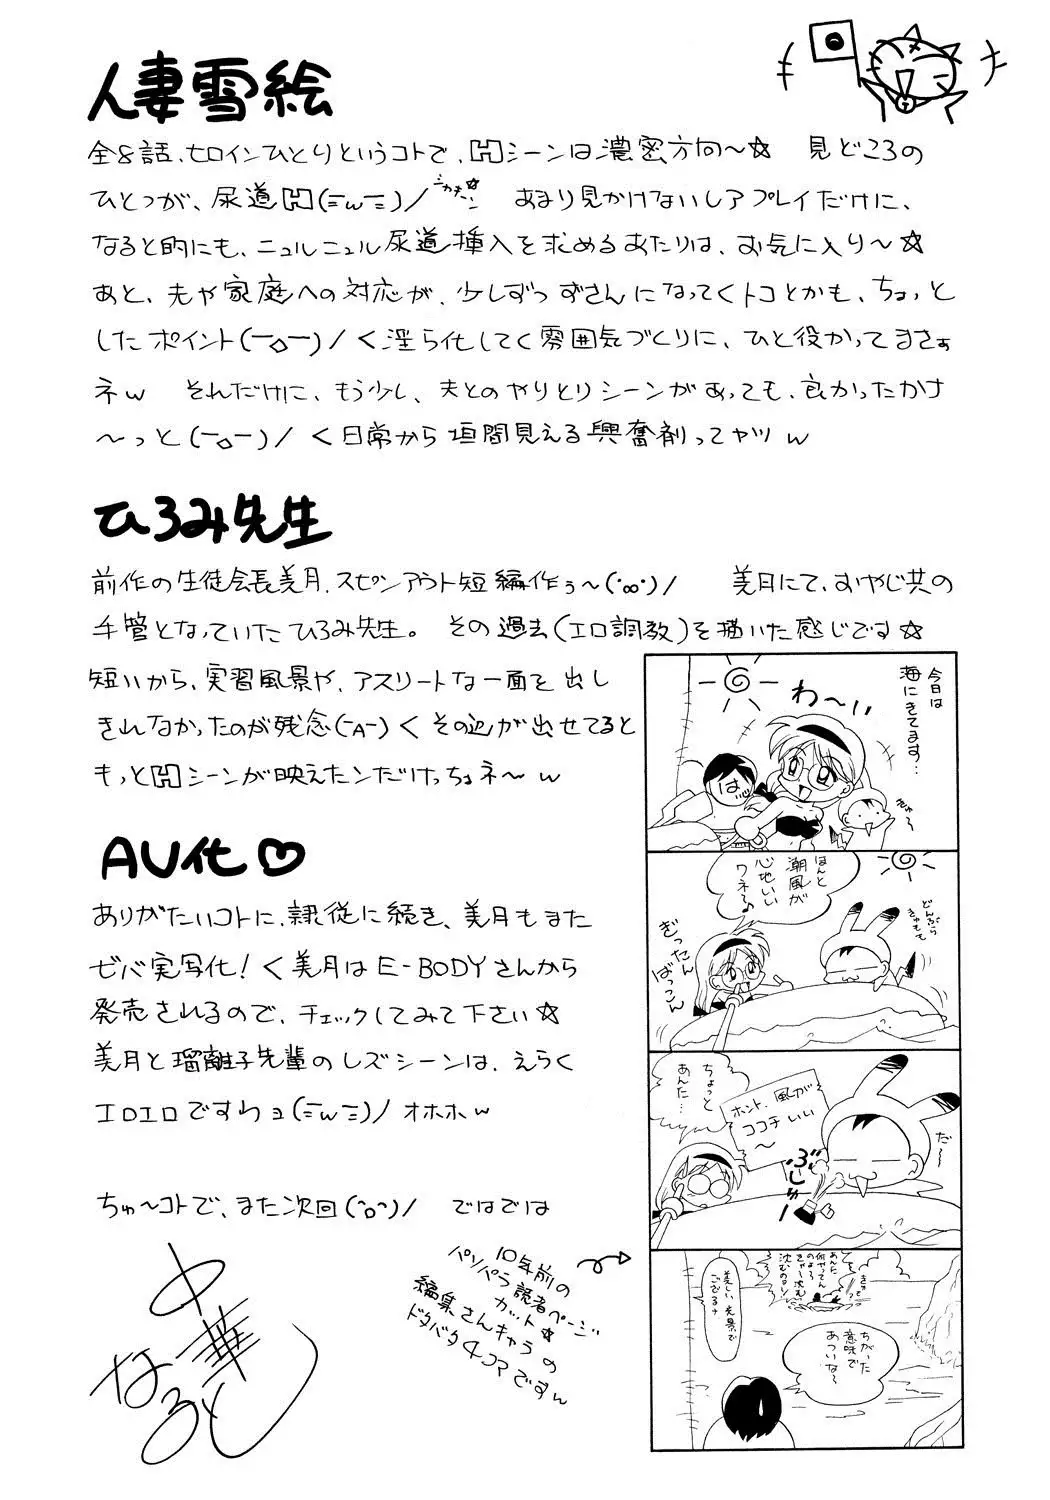 人妻雪絵
全8話、ヒロインひとりというコトで、Hシーンは濃密方向〜☆ 見どころの
ひとつが、尿道H(ニwニ)/ジカキーン☆ あまり見かけないレアプレイだけに、
なると的にも、ニュルニュル尿道挿入を求めるあたりは、お気に入り〜☆
あと、夫や家庭への対応が、少しずつずさんになってくトコとかも、ちょっと
したポイント(￣o￣)/く淫ら化してく雰囲気づくりに、ひと役かってまさぁ
ネw それだけに、もう少し、夫とのやりとりシーンがあっても、良かったかナ
〜っと(￣o￣)/く日常から垣間見える興奮剤ってヤツw
ひろみ先生
前作の生徒会長美月、スピンアウト短編作ぅ〜(・∞・)/ 美月にて、おやじ共の
手管となっていたひろみ先生。その過去(エロ調教)を描いた感じです☆
短いから、実習風景や、アスリートな一面を出し
きれなかったのが残念(￣A￣)くその辺が出せてると
もっとHシーンが映えたンだけっちょネ〜w
AV化♡
ありがたいコトに、隷従に続き、美月もまた
ゼバ実写化!く美月はE-BODYさんから
発売されるので、チェックしてみて下さい☆
美月と瑠離子先輩のレズシーンは、えらく
エロエロですわョ(ニwニ)/オホホw
ちゅ〜コトで、また次回(^o^)/ ではでは
中華
なると
10年前の
パソパラ読者ページ
カット☆
編集さんキャラの
ドタバタ4コマですw
今日は
海にきてます…
わ〜い
は〜
きゅ〜
ほんと
潮風が
心地いい
ワネ〜♪
どんぶら
きゅもも
ぎったん
ばっこん
ちょっと
あんた…
ホント、風が
ココチいい
〜
だ〜
ぶしゅー!
あんた
何やってん
のよ〜
きゃー沈む
沈むのヨ〜
美しい光景で
ござるナ
ちがった
意味で
あついな〜